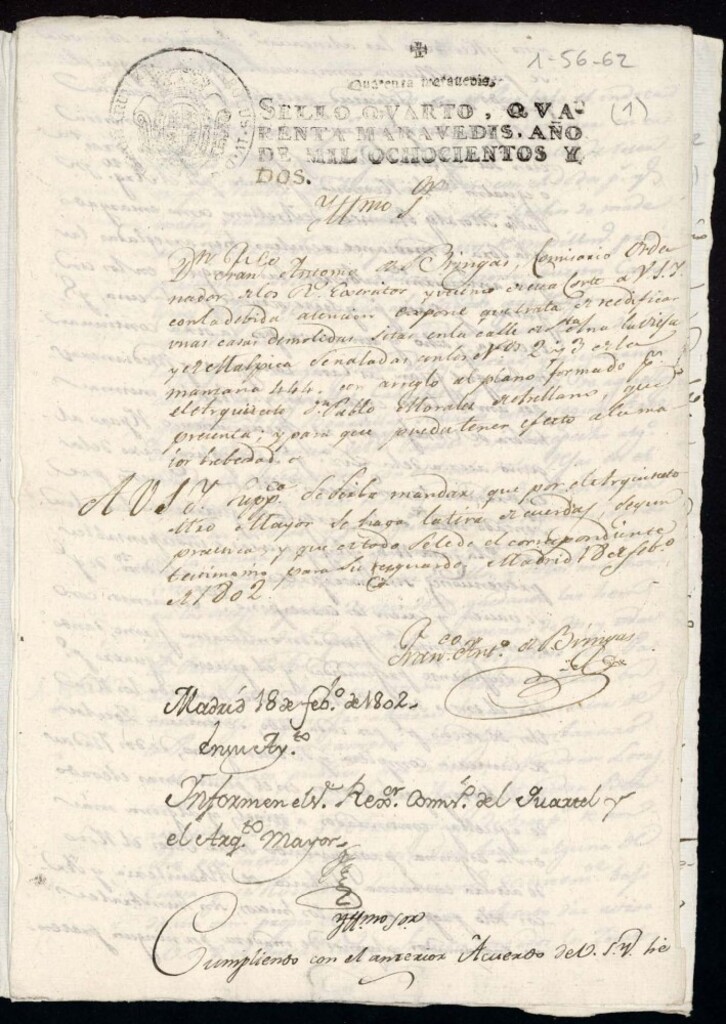 1-56-62
(1)
Quarenta maravedis.
SELLO QVARTO, QVA
RENTA MARAVEDIS. AÑO
DE MIL OCHOCIENTOS Y
DOS.
Yllmo Sor
Dn Franco Antonio de Bringas, Comisario Orde
nador de los Rs. Exercitos y vecino de esta Corte a V.S.Y.
con la debida atencion expone que trata de reedificar
unas casas demolidas sitas en la calle de
y de Malpica señaladas con los Nos 2 y 3 de la
manzana 444. con arreglo al plano formado pr
el Arquitecto Dn Pablo Morales de Arellano, que
presenta; y para que pueda tener efecto a la ma-
ior brebedad.
A V.S.Y. suppca se sirba mandar que por el Arquitecto
Mro Mayor se haga la tira de cuerdas, segun
practica, y que de todo se le de el correspondiente
testimonio para su resguardo. Madrid 18 de Febo
de 1802.
Franco Anto de Bringas
Madrid 18 de Febo. de 1802.
En su Ayto
Informen el Sr. Rexor. Comso. del Quartel y
el Arqto Mayor
Yllmo Sor
Cumpliendo con el anterior Acuerdo de V.S.Y. he